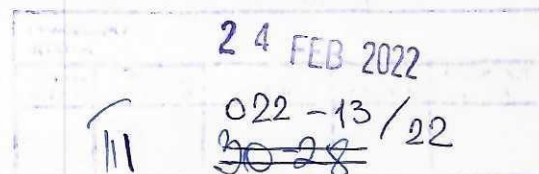 24 FEB 2022
022-13/22
III 30-28